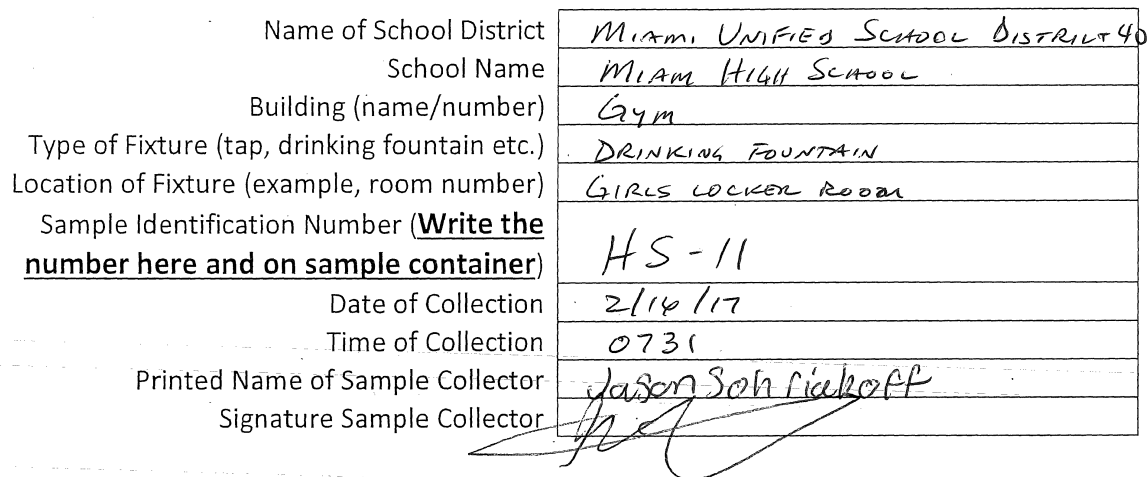 Name of School District MIAMI UNIFIED SCHOOL DISTRICT 40
School Name MIAM HIGH SCHOOL
Building (name/number) GYM
Type of Fixture (tap, drinking fountain etc.) DRINKING FOUNTAIN
Location of Fixture (example, room number) GIRLS LOCKER ROOM
Sample Identification Number (Write the
number here and on sample container) HS-11
Date of Collection 2/16/17
Time of Collection 0731
Printed Name of Sample Collector Jason
Signature Sample Collector